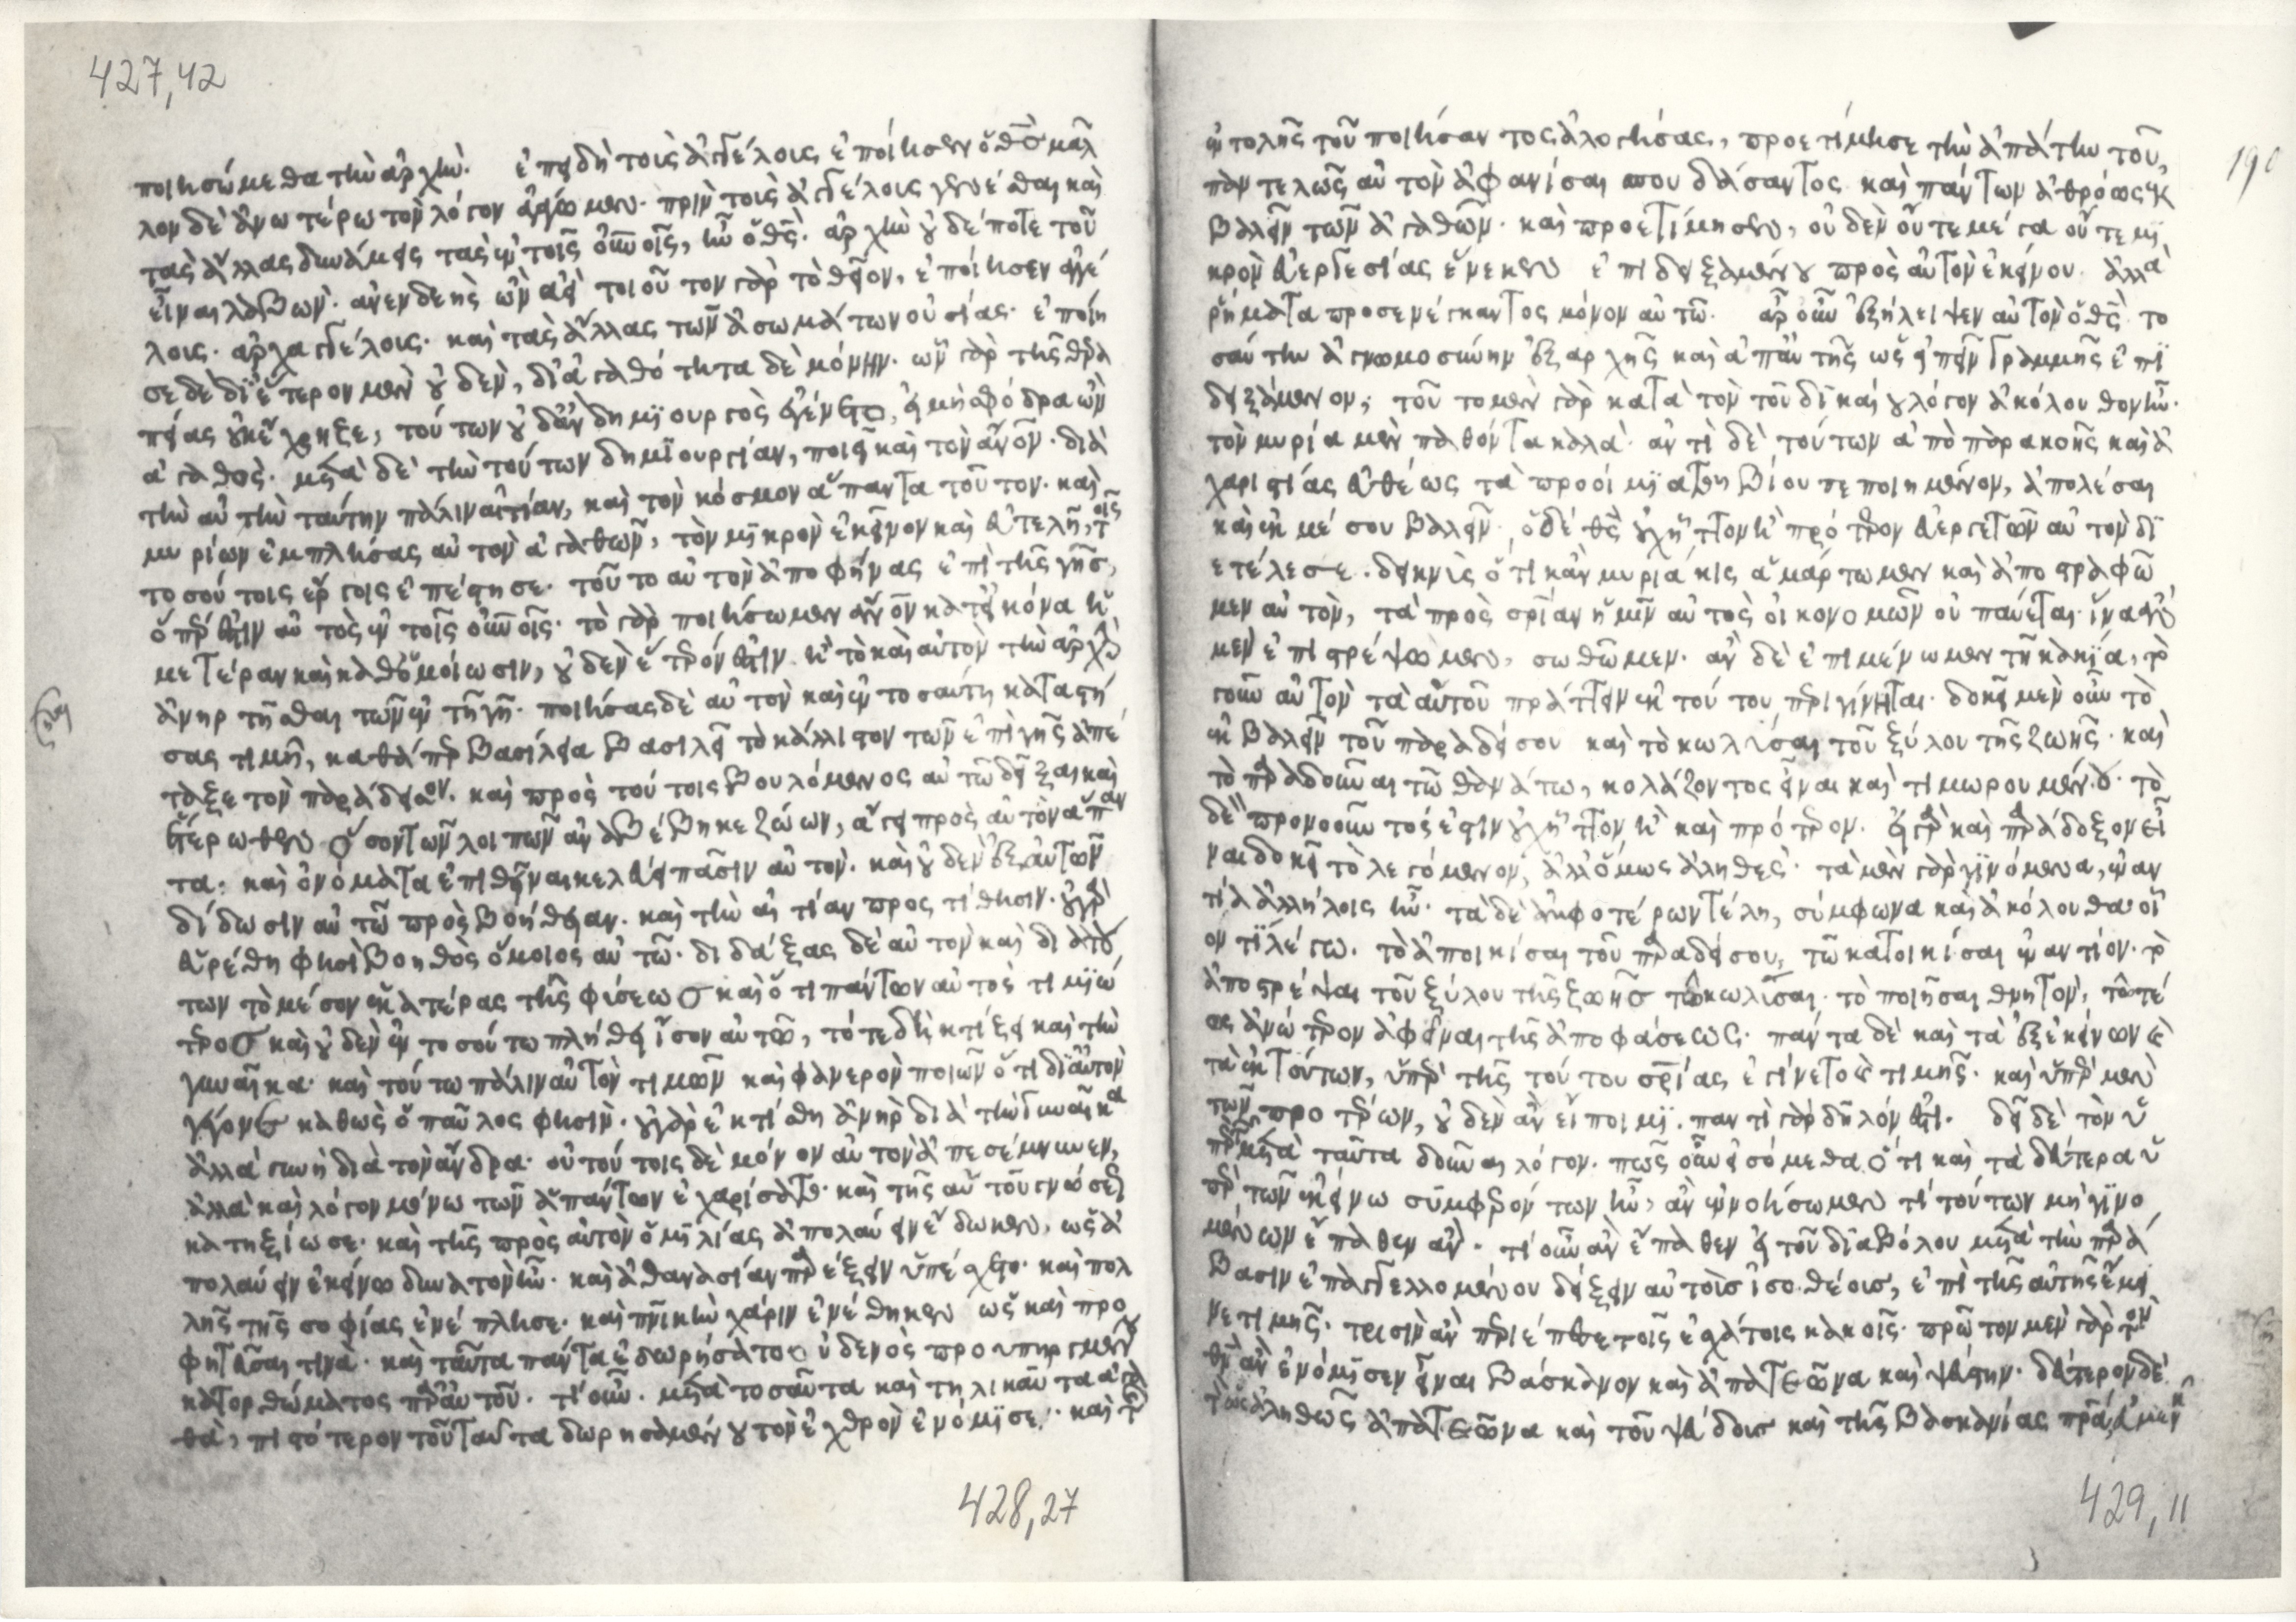 427,42
ποιησώμεθα τὴν ἀρχήν. ἐπειδὴ τοῖς ἀγγέλοις ἐποίησεν ὁ θς μᾶλ
λον δὲ ἀνωτέρω τὸν λόγον ἀγάγωμεν. πρὶν τοῖς ἀγγέλοις γενέσθαι καὶ
τὰς ἄλλας δυνάμεις τὰς ἐν τοῖς οὐνοῖς, ἦν ὁ θς. ἀρχὴν οὐδέποτε τοῦ
εἶναι λαβών. ἀνενδεὴς ὢν ἀεὶ τοιοῦτον γὰρ τὸ θεῖον, ἐποίησεν ἀγγέ
λοις. ἀρχαγγέλοις. καὶ τὰς ἄλλας τῶν ἀσωμάτων οὐσίας. ἐποίη
σε δὲ δι' ἕτερον μὲν οὐδὲν, δι' ἀγαθότητα δὲ μόνην. ὧν γὰρ τῆς θερα
πείας οὐκ ἔχρηζε, τούτων οὐδ' ἂν δημιουργὸς ἐγένετο, εἰ μὴ σφόδρα ὢν
ἀγαθός. μετὰ δὲ τὴν τούτων δημιουργίαν, ποιεῖ καὶ τὸν ἄνον. διὰ
τὴν αὐτὴν ταύτην πάλιν αἰτίαν, καὶ τὸν κόσμον ἅπαντα τοῦτον. καὶ
μυρίων ἐμπλήσας αὐτὸν ἀγαθῶν, τὸν μικρὸν ἐκεῖνον καὶ εὐτελῆ, τοῖς
τοσούτοις ἔργοις ἐπέστησε. τοῦτο αὐτὸν ἀποφήνας ἐπὶ τῆς γῆς,
ὅπερ ἐστὶν αὐτὸς ἐν τοῖς οὐνοῖς. τὸ γὰρ ποιήσωμεν ἄνον κατ' εἰκόνα ἡ
μετέραν καὶ καθ' ὁμοίωσιν, οὐδὲν ἕτερόν ἐστιν ἢ τὸ καὶ αὐτὸν τὴν ἀρχὴν
ἀνηρτῆσθαι τῶν ἐν τῇ γῇ. ποιήσας δὲ αὐτὸν καὶ ἐν τοσαύτῃ καταστή
σας τιμῇ, καθάπερ βασίλεια βασιλεῖ τὸ κάλλιστον τῶν ἐπὶ γῆς ἀπέ
ταξε τὸν παράδεισον. καὶ πρὸς τούτοις βουλόμενος αὐτῷ δεῖξαι καὶ
ἑτέρωθεν ὅσον τῶν λοιπῶν ἀναβέβηκε ζώων, ἄγει πρὸς αὐτὸν ἅπαν
τα. καὶ ὀνόματα ἐπιθεῖναι κελεύει πᾶσιν αὐτόν. καὶ οὐδὲν ἐξ αὐτῶν
δίδωσιν αὐτῷ πρὸς βοήθειαν. καὶ τὴν αἰτίαν προστίθησιν. οὐ γὰρ
εὑρέθη φησὶ βοηθὸς ὅμοιος αὐτῷ. διδάξας δὲ αὐτὸν καὶ διὰ τού
των τὸ μέσον ἑκατέρας τῆς φύσεως καὶ ὅτι πάντων αὐτὸς τιμιώ
τερος καὶ οὐδὲν ἐν τοσούτω πλήθει ἴσον αὐτῷ, τότε δὴ κτίζει καὶ τὴν
γυναῖκα. καὶ τούτω πάλιν αὐτὸν τιμῶν καὶ φανερὸν ποιῶν ὅτι δι' αὐτὸν
γέγονε καθὼς ὁ παῦλος φησίν. οὐ γὰρ ἐκτίσθη ἀνὴρ διὰ τὴν γυναῖκα
ἀλλὰ γυνὴ διὰ τὸν ἄνδρα. οὐ τούτοις δὲ μόνον αὐτὸν ἀπεσέμνυνεν,
ἀλλὰ καὶ λόγον μόνω τῶν ἁπάντων ἐχαρίσατο. καὶ τῆς αὐτοῦ γνώσεως
κατηξίωσε. καὶ τῆς πρὸς αὐτὸν ὁμιλίας ἀπολαύειν ἔδωκεν, ὡς ἀ
πολαύειν ἐκείνω δυνατὸν ἦν. καὶ ἀθανασίαν παρέξειν ὑπέσχετο. καὶ πολ
λῆς τῆς σοφίας ἐνέπλησε. καὶ πνικὴν χάριν ἐνέθηκεν ὡς καὶ προ
φητεῦσαι τινὰ. καὶ ταῦτα πάντα ἐδωρήσατο οὐδενὸς προυπηργμένου
κατορθώματος παρ' αὐτοῦ. τί οὖν. μετὰ τοσαῦτα καὶ τηλικαῦτα ἀγα
θὰ, πιστότερον τοῦ ταῦτα δωρησαμένου τὸν ἐχθρὸν ἐνόμισε. καὶ τῆς
428,27
190
ἐντολῆς τοῦ ποιήσαντος ἀλογήσας, προετίμησε τὴν ἀπάτην τοῦ
παντελῶς αὐτὸν ἀφανίσαι σπουδάσαντος καὶ πάντων ἀθρόως ἐκ
βαλεῖν τῶν ἀγαθῶν. καὶ προετίμησεν, οὐδὲν οὔτε μέγα οὔτε μι
κρὸν εὐεργεσίας ἕνεκεν ἐπιδειξαμένου πρὸς αὐτὸν ἐκείνου. ἀλλὰ
ῥήματα προσενέγκαντος μόνον αὐτῷ. ἆρ' οὖν ἐξήλειψεν αὐτὸν ὁ θς το
σαύτην ἀγνωμοσύνην ἐξ ἀρχῆς καὶ ἀπ' αὐτῆς ὡς εἰπεῖν γραμμῆς ἐπι
δειξάμενον; τοῦτο μὲν γὰρ κατὰ τὸν τοῦ δικαίου λόγον ἀκόλουθον ἦν.
τὸν μυρία μὲν παθόντα καλὰ. ἀντὶ δὲ τούτων ἀπὸ παρακοῆς καὶ ἀ
χαριστίας εὐθέως τὰ προοίμια τοῦ βίου πεποιημένον, ἀπολέσαι
καὶ ἐκ μέσου βαλεῖν. ὁ δὲ θς οὐχ ἧττον ἢ πρότερον εὐεργετῶν αὐτὸν δι
ετέλεσε. δεικνὺς ὅτι κἂν μυριάκις ἁμάρτωμεν καὶ ἀποστραφῶ
μεν αὐτὸν, τὰ πρὸς σρίαν ἡμῖν αὐτὸς οἰκονομῶν οὐ παύεται. ἵνα ἐὰν
μὲν ἐπιστρέψωμεν, σωθῶμεν. ἂν δὲ ἐπιμένωμεν τῇ κακίᾳ, τὸ
γοῦν αὐτὸν τὰ αὐτοῦ πράττειν ἐκ τούτου περιγίνηται. δοκεῖ μὲν οὖν τὸ
ἐκβαλεῖν τοῦ παραδείσου καὶ τὸ κωλῦσαι τοῦ ξύλου τῆς ζωῆς. καὶ
τὸ παραδοῦναι τῷ θανάτω, κολάζοντος εἶναι καὶ τιμωρουμένου. τὸ
δὲ προνοοῦντός ἐστιν οὐχ ἧττον ἢ καὶ πρότερον. εἰ γὰρ καὶ παράδοξον εἶ
ναι δοκεῖ τὸ λεγόμενον, ἀλλ' ὅμως ἀληθές. τὰ μὲν γὰρ γινόμενα, ἐναν
τία ἀλλήλοις ἦν. τὰ δὲ ἀμφοτέρων τέλη, σύμφωνα καὶ ἀκόλουθα οἷ
ον τί λέγω. τὸ ἀποικίσαι τοῦ παραδείσου, τῷ κατοικίσαι ἐναντίον. τὸ
ἀποστρέψαι τοῦ ξύλου τῆς ζωῆς τὸ κωλῦσαι. τὸ ποιῆσαι θνητὸν, τὸ τέ
ως ἀνώτερον ἀφεῖναι τῆς ἀποφάσεως. πάντα δὲ καὶ τὰ ἐξ ἐκείνων καὶ
τὰ ἐκ τούτων, ὑπὲρ τῆς τούτου σρίας ἐγίνετο καὶ τιμῆς. καὶ ὑπὲρ μὲν
τῶν προτέρων, οὐδὲν ἂν εἴποιμι. παντὶ γὰρ δῆλόν ἐστι. δεῖ δὲ τὸν ὑ
πὲρ τῶν μετὰ ταῦτα δοῦναι λόγον. πῶς οὖν εἰσόμεθα ὅτι καὶ τὰ δεύτερα ὑ
πὲρ τῶν ἐκείνω συμφερόντων ἦν, ἂν ἐννοήσωμεν τί τούτων μὴ γινο
μένων ἔπαθεν ἄν. τί οὖν ἂν ἔπαθεν εἰ τοῦ διαβόλου μετὰ τὴν παρά
βασιν ἐπαγγελλομένου δείξειν αὐτοὺς ἰσοθέους, ἐπὶ τῆς αὐτῆς ἔμει
νε τιμῆς. τρισὶν ἂν περιέπεσε τοῖς ἐσχάτοις κακοῖς. πρῶτον μὲν γὰρ τὸν
θν ἂν ἐνόμισεν εἶναι βάσκανον καὶ ἀπατεῶνα καὶ ψεύστην. δεύτερον δὲ
τὸν ὡς ἀληθῶς ἀπατεῶνα καὶ τοῦ ψεύδους καὶ τῆς βασκανίας πρα, εὐμεν
429,11